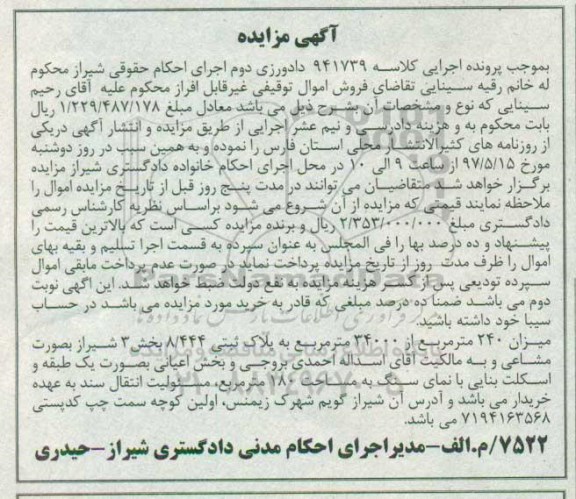 آگهی مزایده
بموجب پرونده اجرایی کلاسه ۹۴۱۷۳۹ دادورزی دوم اجرای احکام حقوقی شیراز محکوم
له خانم رقیه سینایی تقاضای فروش اموال توقیفی غیرقابل افراز محکوم علیه آقای رحیم
سینایی که نوع و مشخصات آن بشرح ذیل می باشد معادل مبلغ ۱/۲۲۹/۴۸۷/۱۷۸ ریال
بابت محکوم به و هزینه دادرسی و نیم عشر اجرایی از طریق مزایده و انتشار آگهی دریکی
از روزنامه های کثیرالانتشار محلی استان فارس را نموده و به همین سبب در روز دوشنبه
مورخ ۹۷/۵/۱۵ از ساعت ۹ الی ۱۰ در محل اجرای احکام خانواده دادگستری شیراز مزایده
برگزار خواهد شد متقاضیان می توانند در مدت پنج روز قبل از تاریخ مزایده اموال را
ملاحظه نمایند قیمتی که مزایده از آن شروع می شود براساس نظریه کارشناس رسمی
دادگستری مبلغ ۲/۳۵۳/۰۰۰/۰۰۰ ریال و برنده مزایده کسی است که بالاترین قیمت را
پیشنهاد و ده درصد بها را فی المجلس به عنوان سپرده به قسمت اجرا تسلیم و بقیه بهای
اموال را ظرف مدت روز از تاریخ مزایده پرداخت نماید در صورت عدم پرداخت مابقی اموال
سپرده تودیعی پس از کسر هزینه مزایده به نفع دولت ضبط خواهد شد. این آگهی نوبت
دوم می باشد ضمنا ده درصد مبلغی که قادر به خرید مورد مزایده می باشد در حساب
سیبا خود داشته باشید.
میزان ۲۴۰ مترمربع از ۳۴۰۰۰ مترمربع به پلاک ثبتی ۸/۴۴۴ بخش ۳ شیراز بصورت
مشاعی و به مالکیت آقای اسداله احمدی بروجی و بخش اعیانی بصورت یک طبقه و
اسکلت بنایی با نمای سنگ به مساحت ۱۸۰ مترمربع، مسئولیت انتقال سند به عهده
خریدار می باشد و آدرس آن شیراز گویم شهرک زیمنس، اولین کوچه سمت چپ کدپستی
۷۱۹۴۱۶۳۵۶۸ می باشد.
۷۵۲۲/م.الف-مدیراجرای احکام مدنی دادگستری شیراز-حیدری